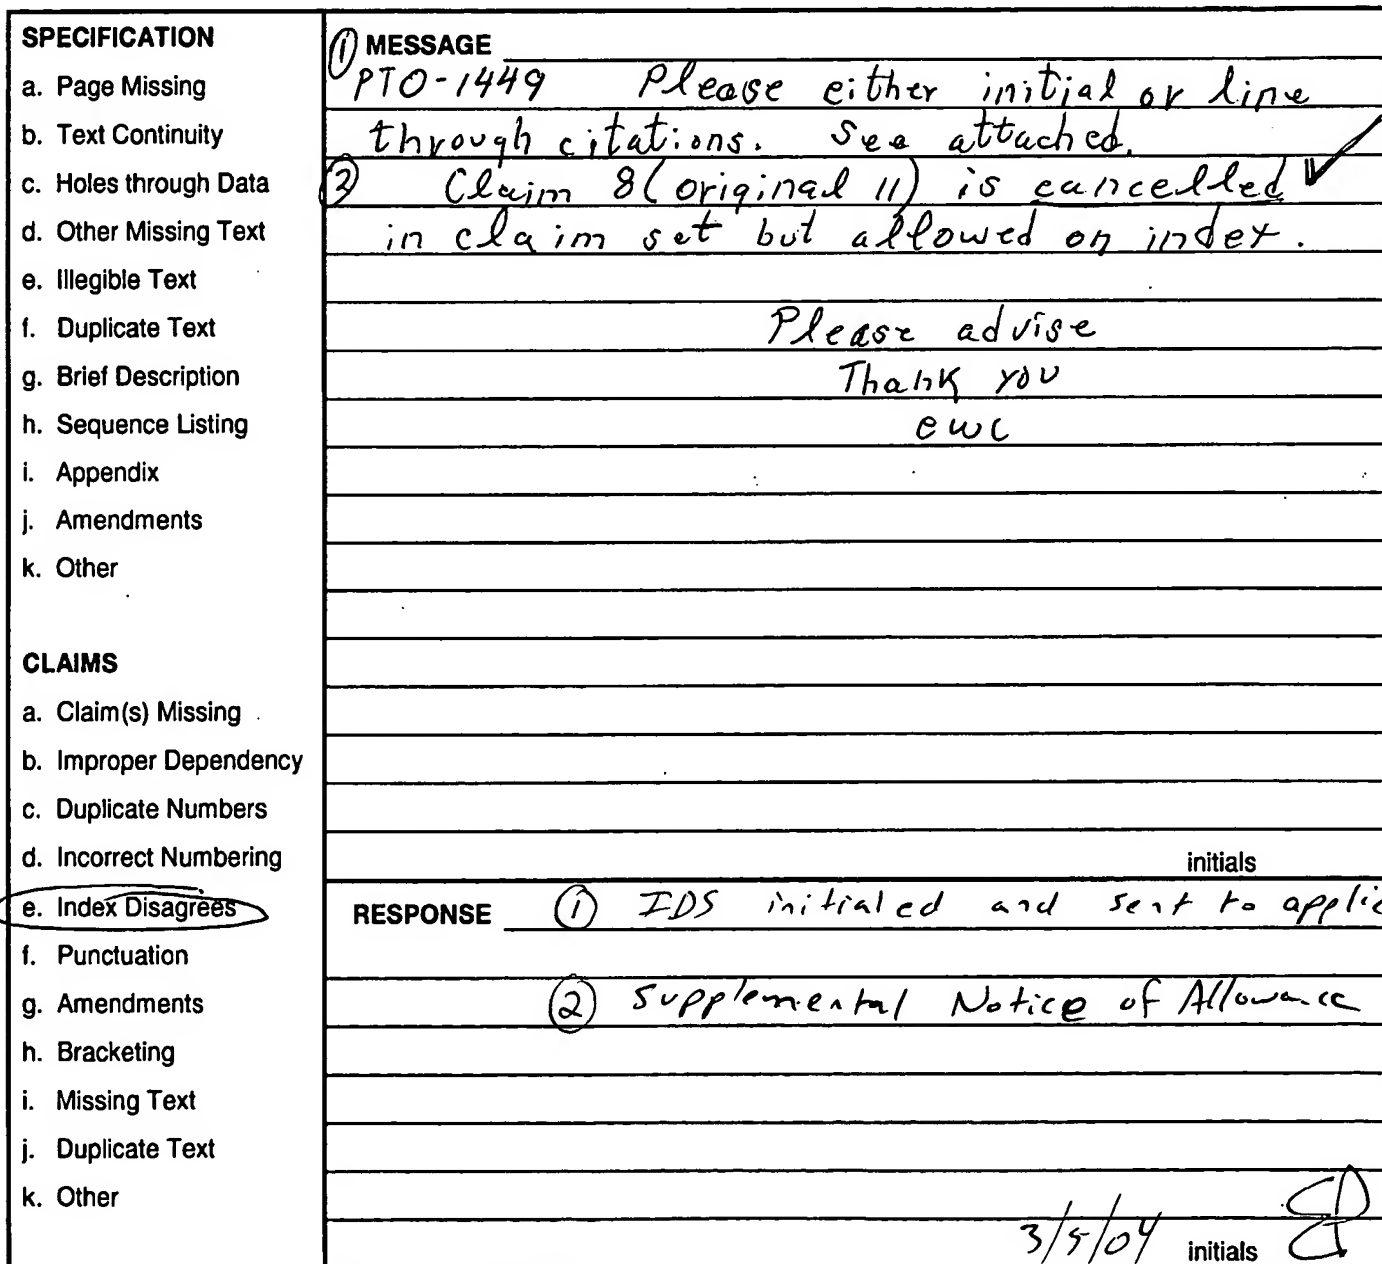 SPECIFICATION
a. Page Missing
b. Text Continuity
c. Holes through Data
d. Other Missing Text
e. Illegible Text
f. Duplicate Text
g. Brief Description
h. Sequence Listing
i. Appendix
j. Amendments
k. Other
CLAIMS
a. Claim(s) Missing
b. Improper Dependency
c. Duplicate Numbers
d. Incorrect Numbering
e. Index Disagrees
f. Punctuation
g. Amendments
h. Bracketing
i. Missing Text
j. Duplicate Text
k. Other
① MESSAGE
PTO-1449 Please either initial or line
through citations. See attached.
② Claim 8 (original 11) is cancelled ✓
in claim set but allowed on index.
Please advise
Thank you
ewc
initials
RESPONSE ① IDS initialed and sent to applic
② Supplemental Notice of Allowance
3/5/04 initials